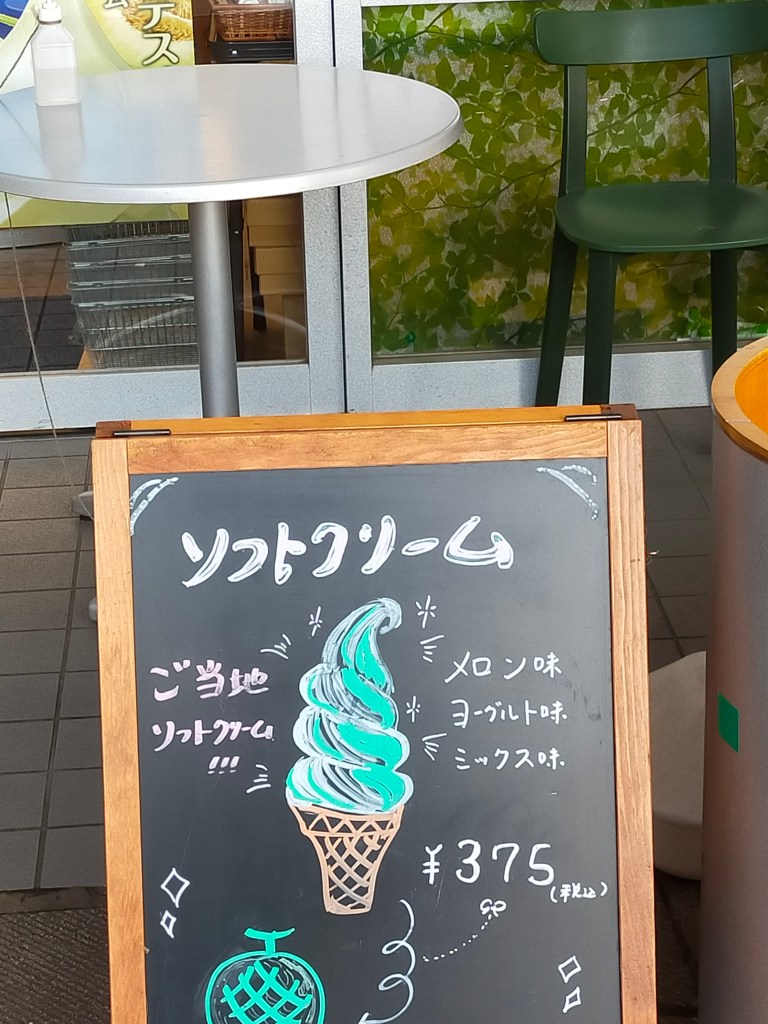 テス
ソフトクリーム
ご当地
ソフトクリーム
!!!
メロン味
ヨーグルト味
ミックス味
¥375
(税込)